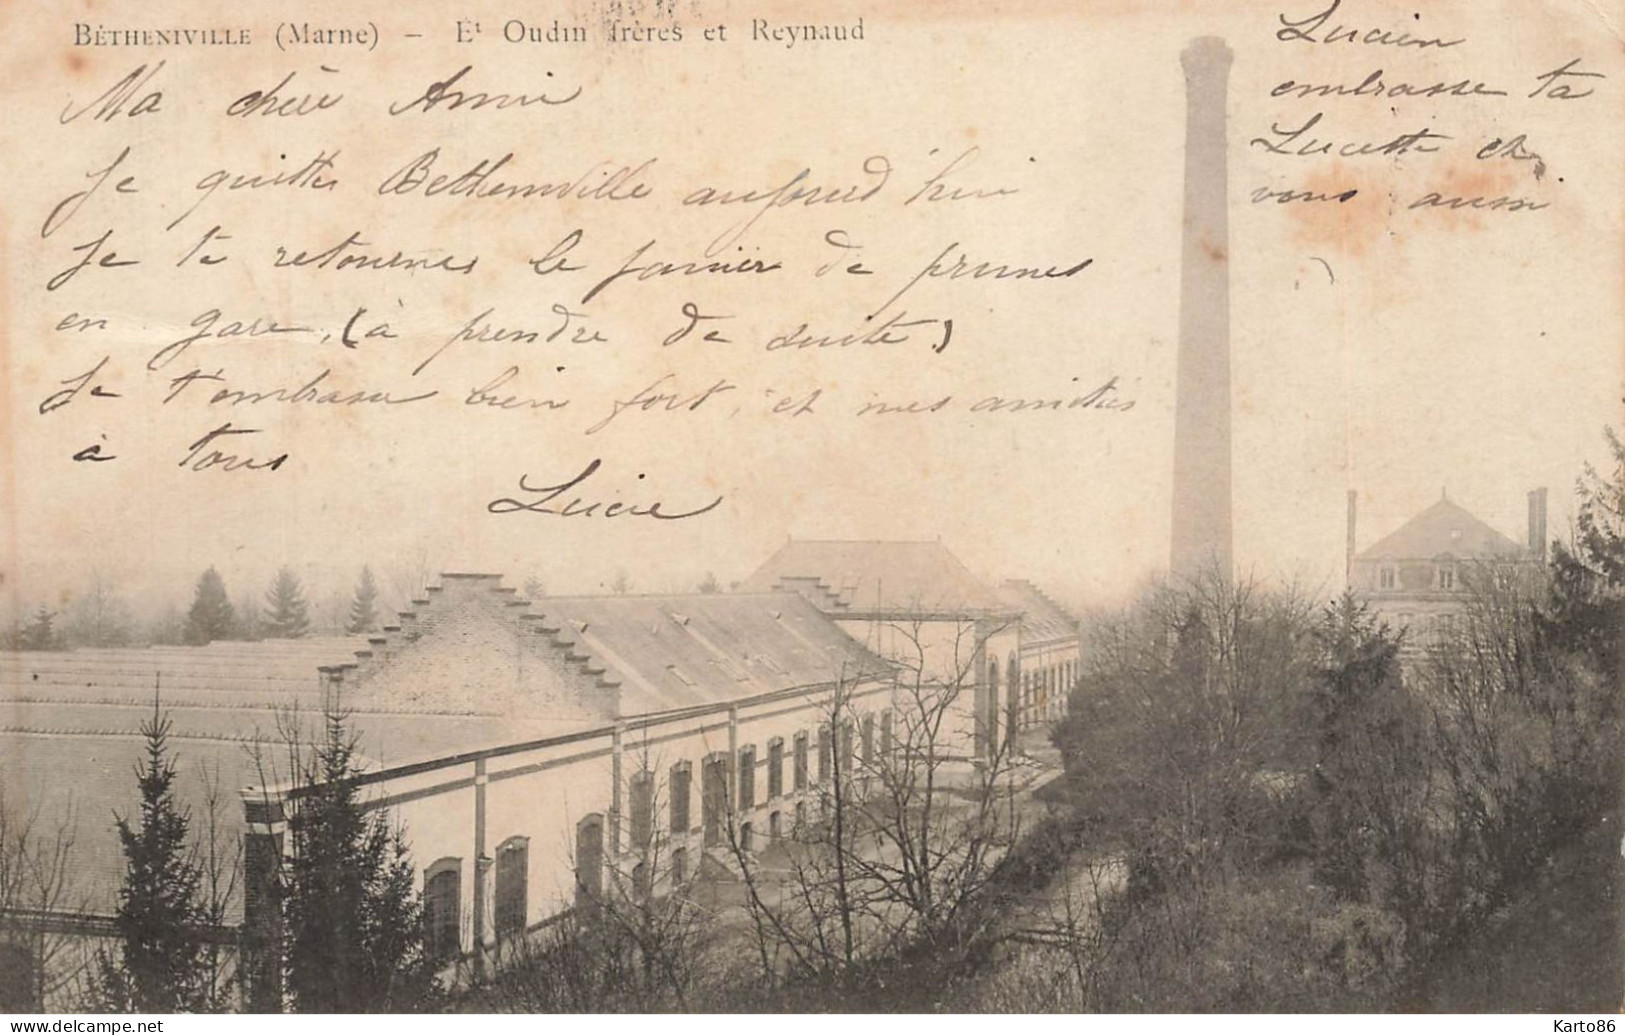 BÉTHENIVILLE (Marne) – Et Oudin frères et Reynaud
Ma chère Amie
Je quitte Bethenville aujourd'hui
Je te retournes le panier de prunes
en gare, (à prendre de suite.)
Je t'embrasse bien fort, et mes amitiés
à tous
Lucie
Lucien
embrasse ta
Lucette et
vous aussi
www.delcampe.net
Karto86